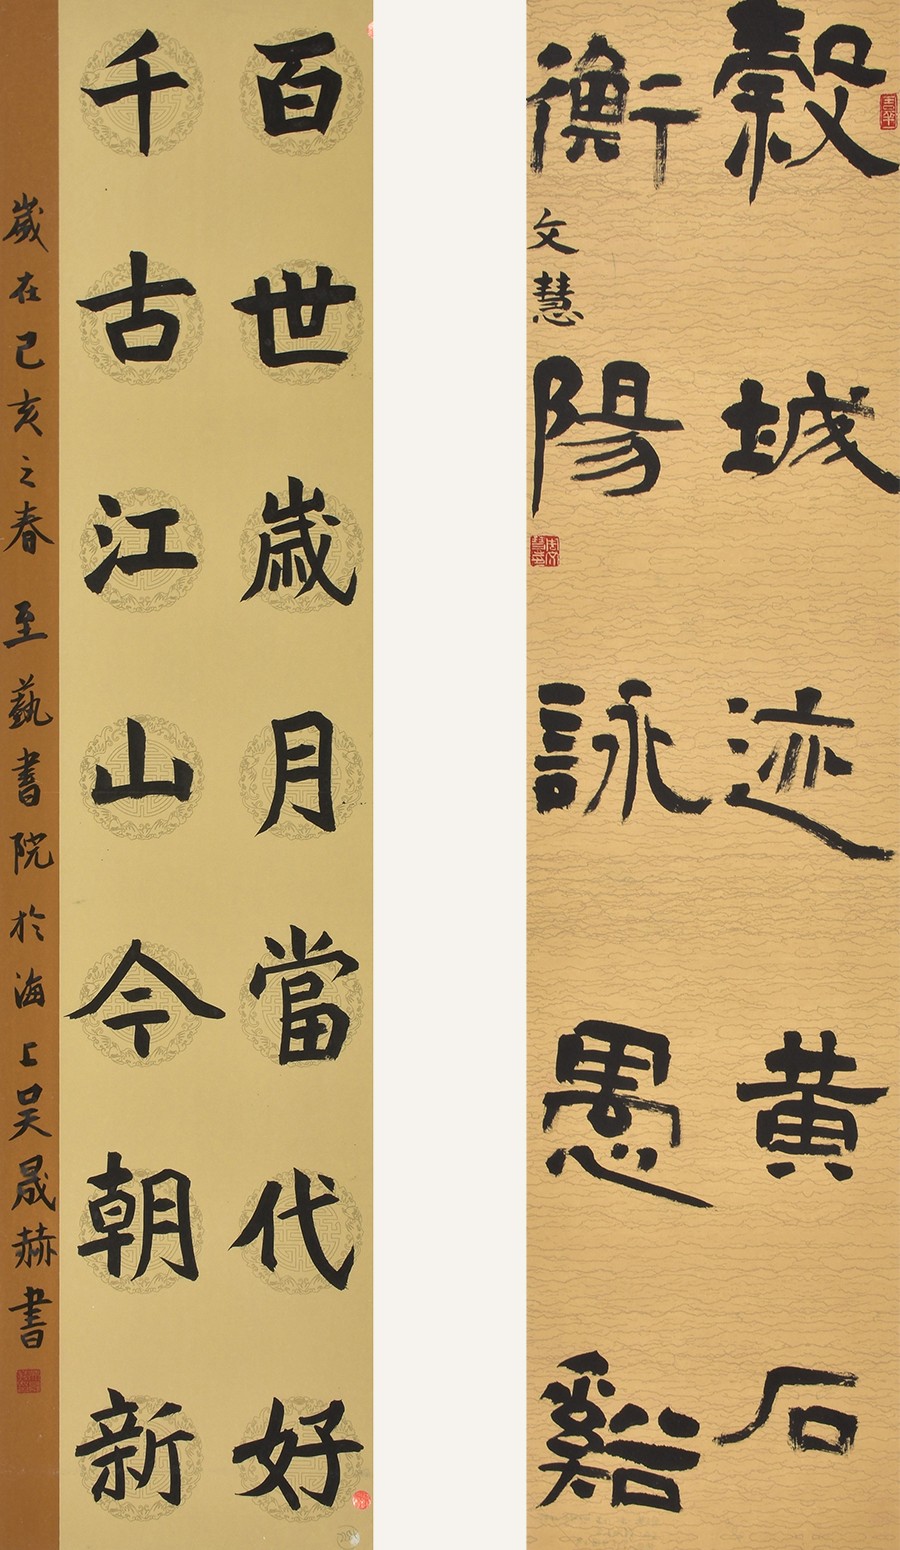 百世歲月當代好
千古江山今朝新
歲在己亥之春 至藝書院於海上吴晟赫書
穀城迹黄石
衡陽詠愚谿
文慧